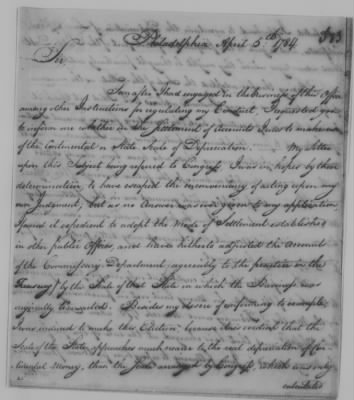 Philadelphia April 5th 1784
Sir
Soon after I had engaged in the Business of this Office
among other Instructions for regulating my Conduct, I requested you
to inform me whether in the Settlement of Accounts I was to make use
of the Continental or State Scale of Depreciation. My Letter
upon this Subject being referred to Congress I was in hopes by their
determination, to have escaped the inconveniency of acting upon my
own Judgment, but as no Answer was ever given to my application
I found it expedient to adopt the Mode of Settlement established
in other public Offices, and have hitherto adjusted the Accounts
of the Commissary Department, agreeably to the practice in the
Treasury, by the Scale of that State in which the Business was
originally transacted. Besides my desire of conforming to example
I was induced to make this Election because I was convinced that the
Scale of the States, approaches much nearer to the real depreciation of Con-
tinental Money, than the Scale arranged by Congress, which was only
calculated